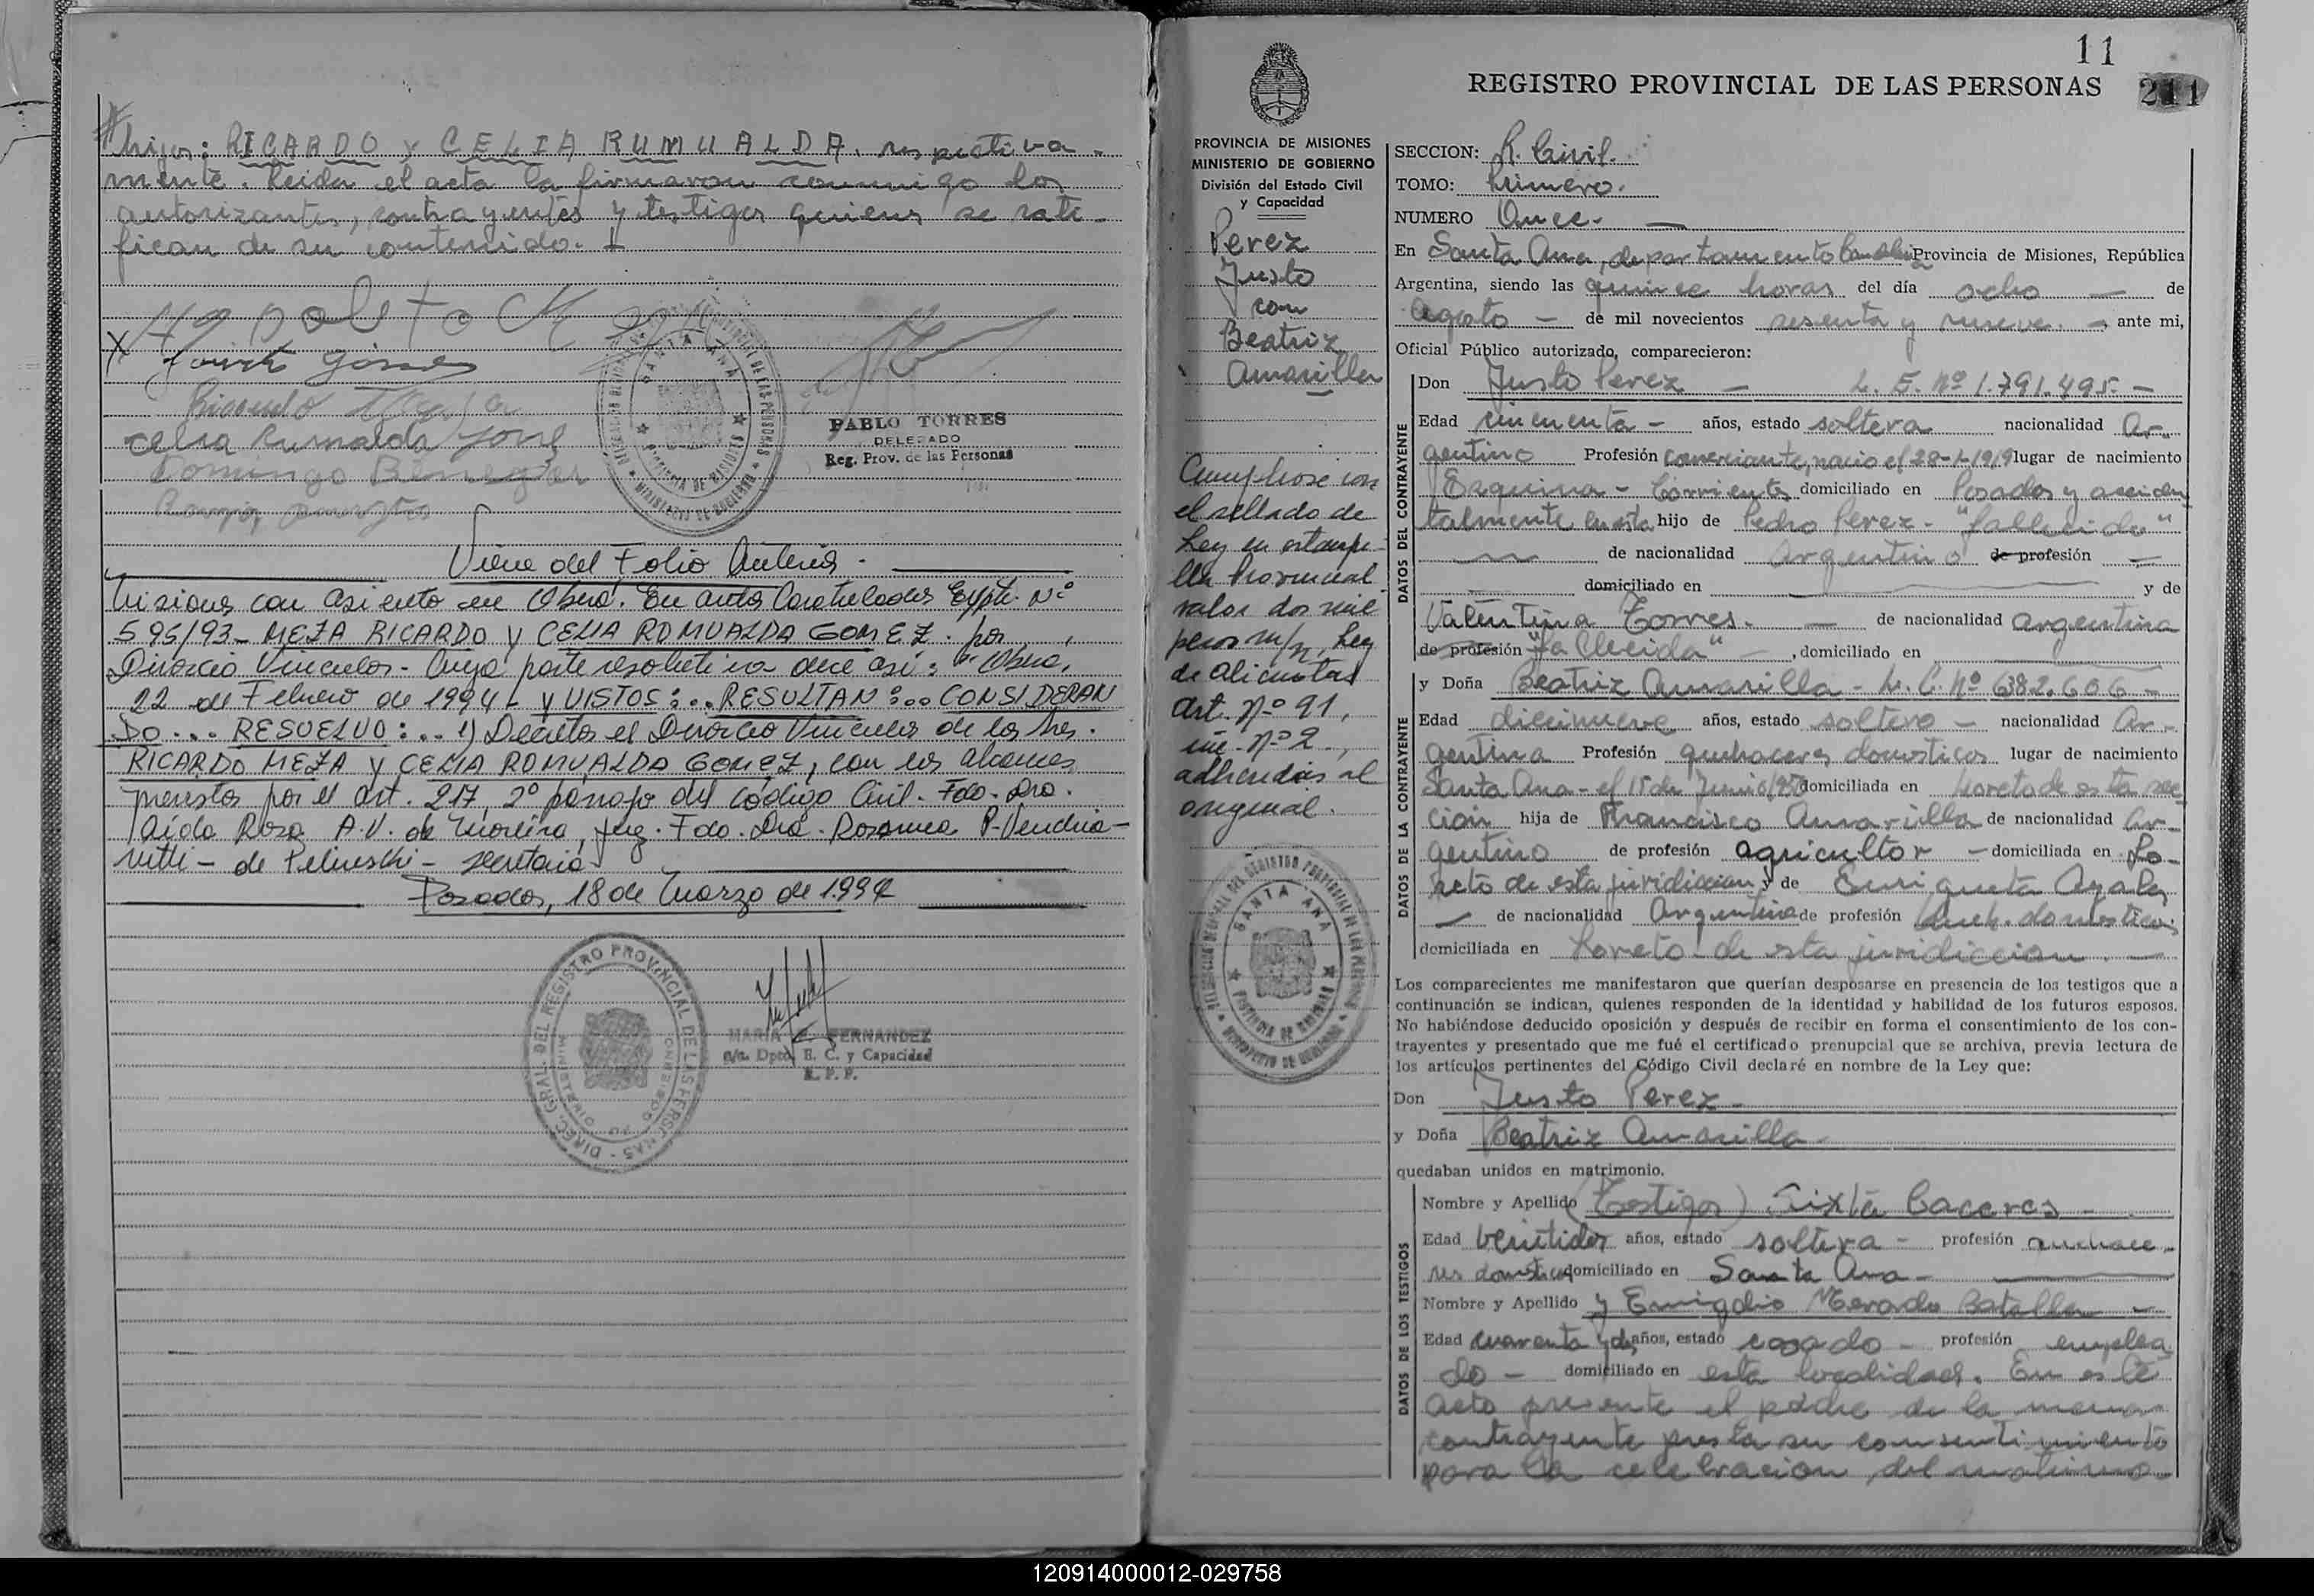 hijos: RICARDO y CELIA RUMUALDA. respectiva-
mente. Leida el acta la firmaron conmigo los
autorizantes, contrayentes y testigos quienes se rati-
fican de su contenido.
Gómez
Celia Rumalda Gomez
Domingo Benegas
SANTA ANA
PROVINCIA DE MISIONES
MINISTERIO DE GOBIERNO
PABLO TORRES
DELEGADO
Reg. Prov. de las Personas
Viene del Folio Anterior.
Misiones con asiento en Oberá. En autos Caratulados Expte. Nº
595/93 - MEZA RICARDO y CELIA ROMUALDA GOMEZ. por
Divorcio Vincular - Cuya parte resolutiva dice asi: "Oberá,
22 de Febrero de 1994 - y VISTOS:... RESULTAN:... CONSIDERAN
DO... RESUELVO:... 1) Decretar el Divorcio Vincular de los Sres.
RICARDO MEZA y CELIA ROMUALDA GOMEZ, con los alcances
previstos por el art. 217, 2º párrafo del Código Civil. Fdo. Dra.
Aida Rosa A.V. de Moreira, Juez. Fdo. Dra.
secretaria
Posadas, 18 de Marzo de 1.994
DIREC. GRAL. DEL REGISTRO PROVINCIAL DE LAS PERSONAS
MINISTERIO DE GOBIERNO
MARIA FERNANDEZ
a/c. Dpto. E. C. y Capacidad
R. P. P.
11
REGISTRO PROVINCIAL DE LAS PERSONAS 211
PROVINCIA DE MISIONES
MINISTERIO DE GOBIERNO
División del Estado Civil
y Capacidad
Perez
Justo
con
Beatriz
Amarilla
Cumplióse con
el sellado de
Ley en estampi-
lla Provincial
valor dos mil
pesos m/n, Ley
de alicuotas
art. nº 91,
inc. nº 2.,
adheridas al
original.
SANTA ANA
PROVINCIA DE MISIONES
MINISTERIO DE GOBIERNO
SECCION: R. Civil.
TOMO: Primero.
NUMERO Once. —
En Santa Ana, departamento Candelaria Provincia de Misiones, República
Argentina, siendo las quince horas del día ocho — de
Agosto — de mil novecientos sesenta y nueve. — ante mi,
Oficial Público autorizado, comparecieron:
DATOS DEL CONTRAYENTE
Don Justo Perez — L. E. Nº 1.791.495. —
Edad cincuenta — años, estado soltero nacionalidad Ar-
gentino Profesión comerciante, nacio el 28-1-1919 lugar de nacimiento
Esquina - Corrientes domiciliado en Posadas y acciden
talmente en esta hijo de Pedro Perez - "fallecido"
de nacionalidad argentino de profesión —
domiciliado en y de
Valentina Torres. — de nacionalidad argentina
de profesión "fallecida" — , domiciliado en
DATOS DE LA CONTRAYENTE
y Doña Beatriz Amarilla - L. C. Nº 6.382.606 -
Edad diecinueve años, estado soltera — nacionalidad Ar-
gentina Profesión quehaceres domesticos lugar de nacimiento
Santa Ana - el 15 de Junio/950 domiciliada en Loreto de esta sec
ción hija de Francisco Amarilla de nacionalidad Ar-
gentino de profesión agricultor — domiciliada en Lo-
reto de esta juridiccion y de Enriqueta Ayala
— de nacionalidad Argentina de profesión Queh. domesticos
domiciliada en Loreto de esta juridiccion. —
Los comparecientes me manifestaron que querían desposarse en presencia de los testigos que a
continuación se indican, quienes responden de la identidad y habilidad de los futuros esposos.
No habiéndose deducido oposición y después de recibir en forma el consentimiento de los con-
trayentes y presentado que me fué el certificado prenupcial que se archiva, previa lectura de
los artículos pertinentes del Código Civil declaré en nombre de la Ley que:
Don Justo Perez —
y Doña Beatriz Amarilla —
quedaban unidos en matrimonio.
DATOS DE LOS TESTIGOS
Nombre y Apellido (Testigos) Sixta Caceres —
Edad veintidos años, estado soltera — profesión quehace-
res domesticos domiciliado en Santa Ana —
Nombre y Apellido y Emigdio Batalla —
Edad cuarenta y dos años, estado casado — profesión emplea
do — domiciliado en esta localidad. En este
acto presente el padre de la menor
contrayente presta su consentimiento
para la celebracion del matrimo
120914000012-029758